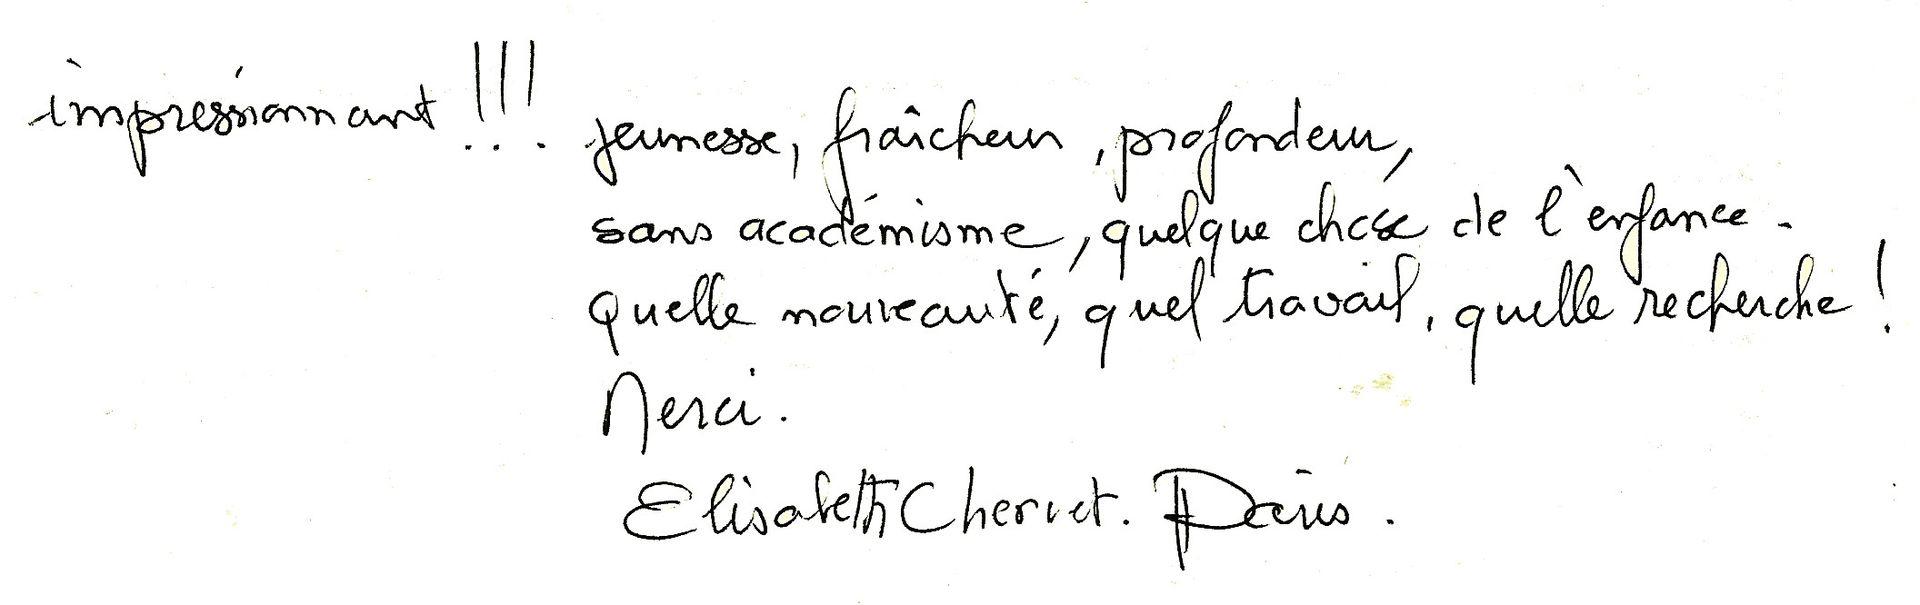 impressionnant !!! jeunesse, fraîcheur, profondeur,
sans académisme, quelque chose de l'enfance.
Quelle nouveauté, quel travail, quelle recherche !
Merci.
Elisabeth Chervet. Paris.